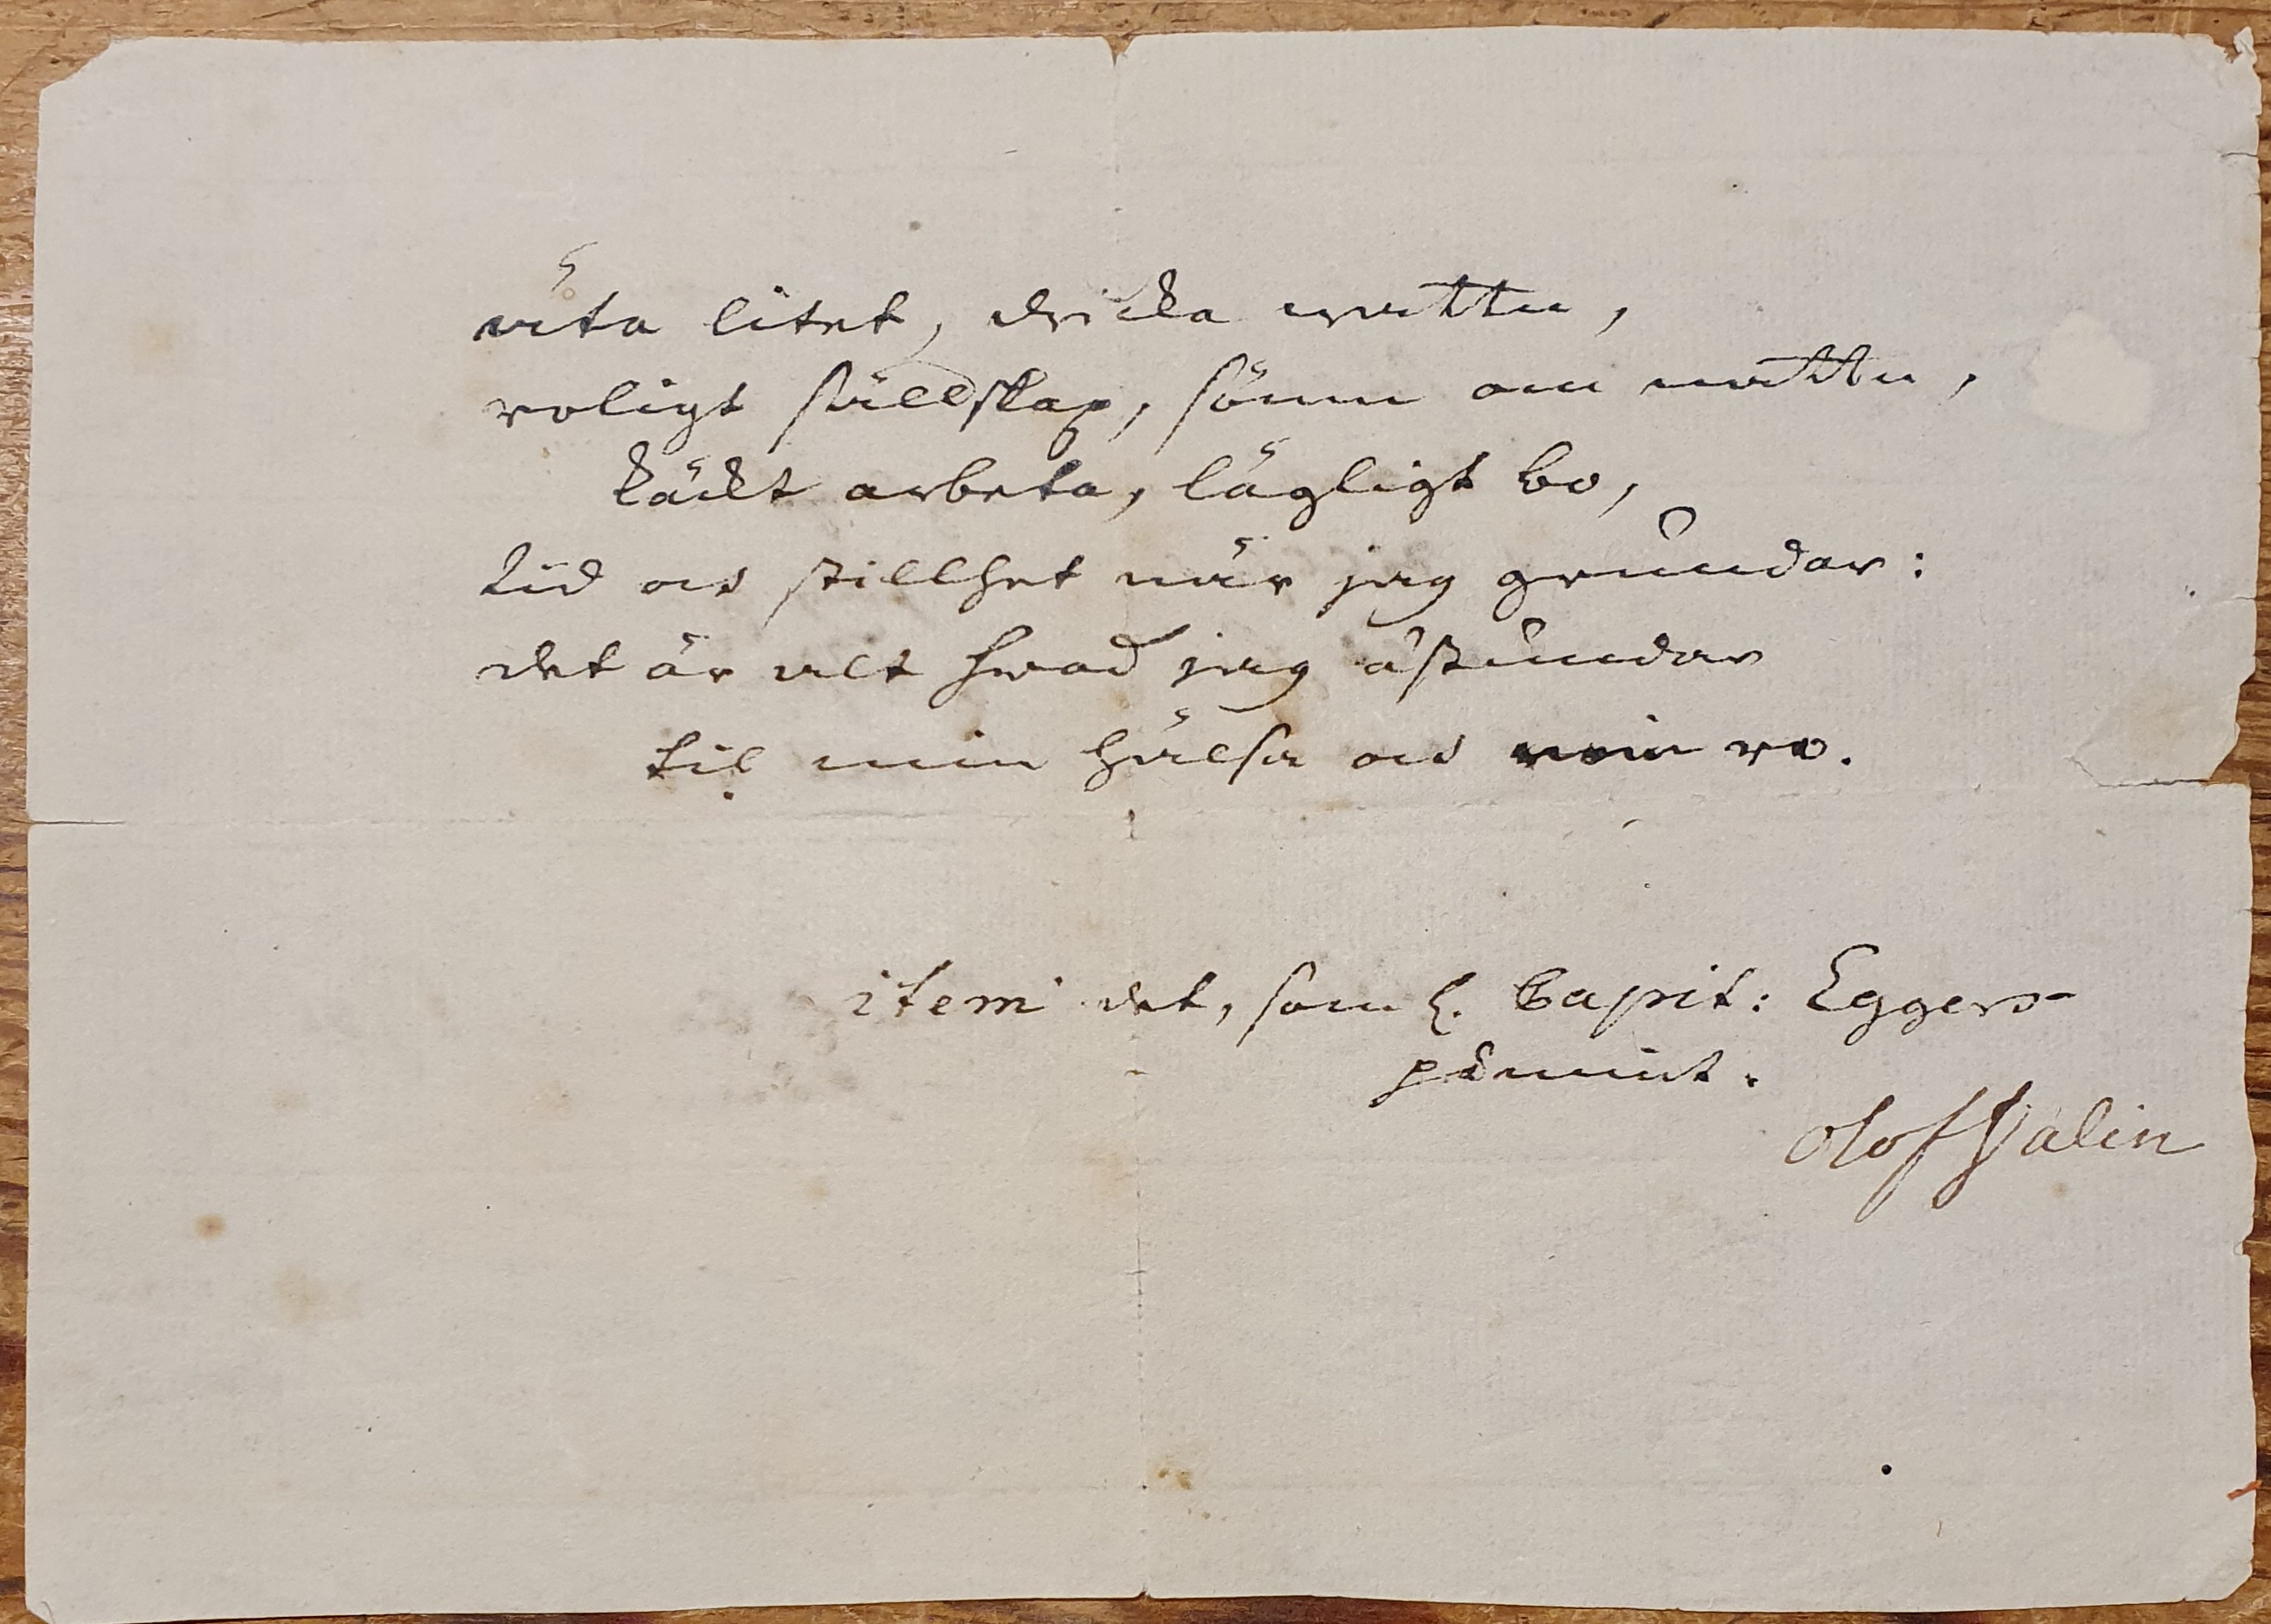 äta litet, dricka watten,
roligt sällskap, sömn om natten,
käckt arbeta, lägligt bo,
tid och stillhet när jag grundar:
det är alt hwad jag åstundar
til min hälsa och min ro.
item det, som H. Capit: Eggers
påmint.
Olof Dalin